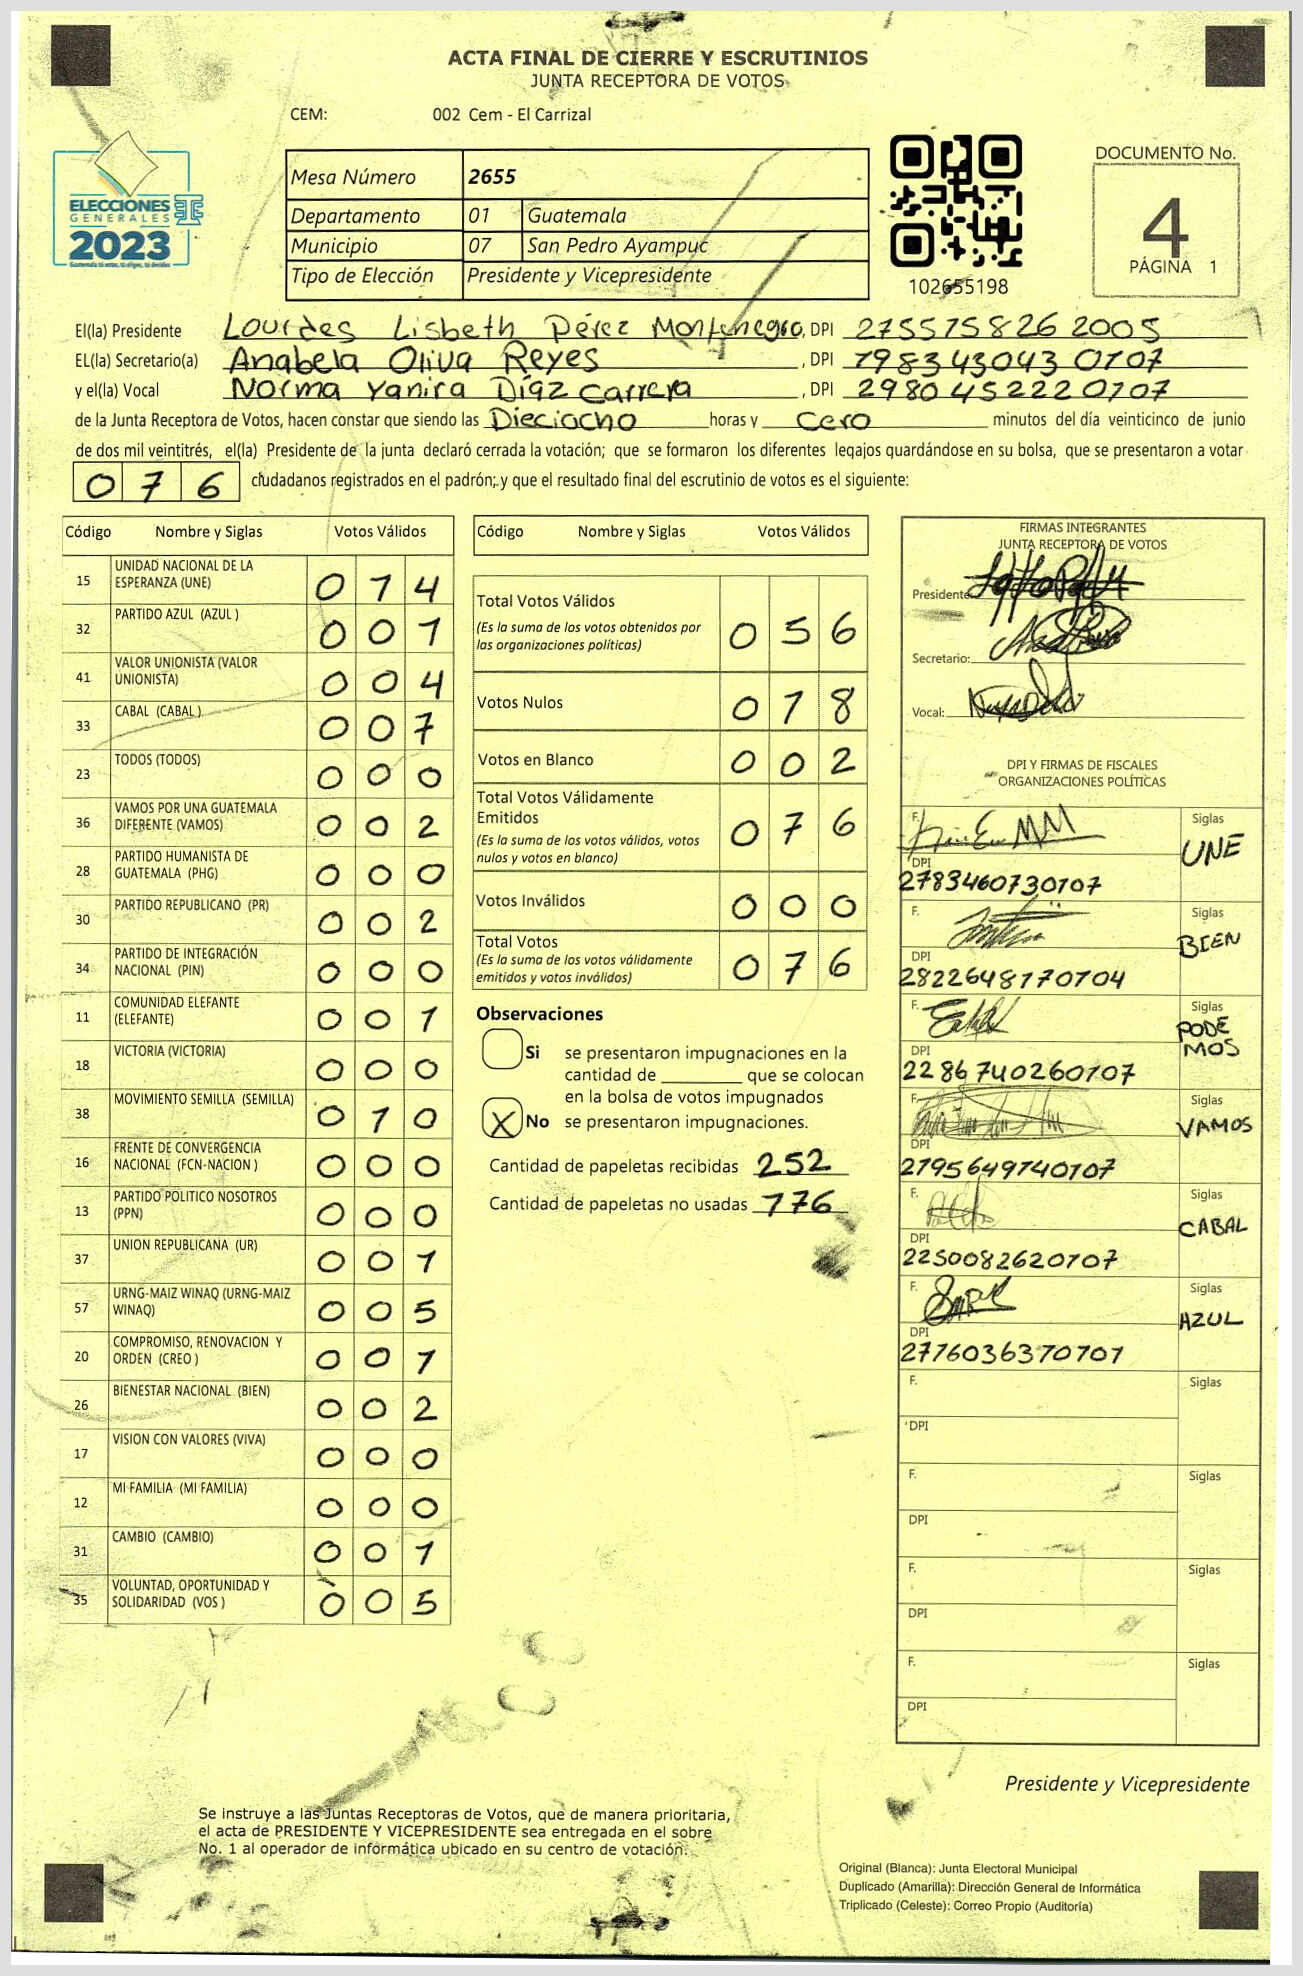 ACTA FINAL DE CIERRE Y ESCRUTINIOS
JUNTA RECEPTORA DE VOTOS
CEM: 002 Cem - El Carrizal
ELECCIONES
GENERALES
2023
Mesa Número 2655
Departamento 01 Guatemala
Municipio 07 San Pedro Ayampuc
Tipo de Elección Presidente y Vicepresidente
102655198
DOCUMENTO No.
4
PÁGINA 1
El(la) Presidente Lourdes Lisbeth Pérez Montenegro, DPI 275575826 2005
EL(la) Secretario(a) Anabela Oliva Reyes, DPI 198343043 0107
y el(la) Vocal Norma Yanira Díaz Carrera, DPI 2980 45222 0107
de la Junta Receptora de Votos, hacen constar que siendo las Dieciocho horas y Cero minutos del día veinticinco de junio
de dos mil veintitrés, el(la) Presidente de la junta declaró cerrada la votación; que se formaron los diferentes legajos guardándose en su bolsa, que se presentaron a votar
076 ciudadanos registrados en el padrón; y que el resultado final del escrutinio de votos es el siguiente:
Código Nombre y Siglas Votos Válidos
15 UNIDAD NACIONAL DE LA ESPERANZA (UNE) 014
32 PARTIDO AZUL (AZUL ) 001
41 VALOR UNIONISTA (VALOR UNIONISTA) 004
33 CABAL (CABAL ) 007
23 TODOS (TODOS) 000
36 VAMOS POR UNA GUATEMALA DIFERENTE (VAMOS) 002
28 PARTIDO HUMANISTA DE GUATEMALA (PHG) 000
30 PARTIDO REPUBLICANO (PR) 002
34 PARTIDO DE INTEGRACIÓN NACIONAL (PIN) 000
11 COMUNIDAD ELEFANTE (ELEFANTE) 001
18 VICTORIA (VICTORIA) 000
38 MOVIMIENTO SEMILLA (SEMILLA) 010
16 FRENTE DE CONVERGENCIA NACIONAL (FCN-NACION ) 000
13 PARTIDO POLITICO NOSOTROS (PPN) 000
37 UNION REPUBLICANA (UR) 001
57 URNG-MAIZ WINAQ (URNG-MAIZ WINAQ) 005
20 COMPROMISO, RENOVACION Y ORDEN (CREO ) 001
26 BIENESTAR NACIONAL (BIEN) 002
17 VISION CON VALORES (VIVA) 000
12 MI FAMILIA (MI FAMILIA) 000
31 CAMBIO (CAMBIO) 001
35 VOLUNTAD, OPORTUNIDAD Y SOLIDARIDAD (VOS ) 005
Código Nombre y Siglas Votos Válidos
Total Votos Válidos 056
(Es la suma de los votos obtenidos por
las organizaciones políticas)
Votos Nulos 018
Votos en Blanco 002
Total Votos Válidamente
Emitidos 076
(Es la suma de los votos válidos, votos
nulos y votos en blanco)
Votos Inválidos 000
Total Votos 076
(Es la suma de los votos válidamente
emitidos y votos inválidos)
Observaciones
Si se presentaron impugnaciones en la
cantidad de ________ que se colocan
en la bolsa de votos impugnados
X No se presentaron impugnaciones.
Cantidad de papeletas recibidas 252
Cantidad de papeletas no usadas 176
FIRMAS INTEGRANTES
JUNTA RECEPTORA DE VOTOS
Presidente:
Secretario:
Vocal:
DPI Y FIRMAS DE FISCALES
ORGANIZACIONES POLÍTICAS
F. Siglas
UNE
DPI
2783460730107
F. Siglas
BIEN
DPI
2822648170704
F. Siglas
PODE
MOS
DPI
2286740260107
F. Siglas
VAMOS
DPI
2795649740107
F. Siglas
CABAL
DPI
2250082620107
F. Siglas
AZUL
DPI
2776036370101
F. Siglas
DPI
F. Siglas
DPI
F. Siglas
DPI
F. Siglas
DPI
Presidente y Vicepresidente
Se instruye a las Juntas Receptoras de Votos, que de manera prioritaria,
el acta de PRESIDENTE Y VICEPRESIDENTE sea entregada en el sobre
No. 1 al operador de informática ubicado en su centro de votación.
Original (Blanca): Junta Electoral Municipal
Duplicado (Amarilla): Dirección General de Informática
Triplicado (Celeste): Correo Propio (Auditoría)